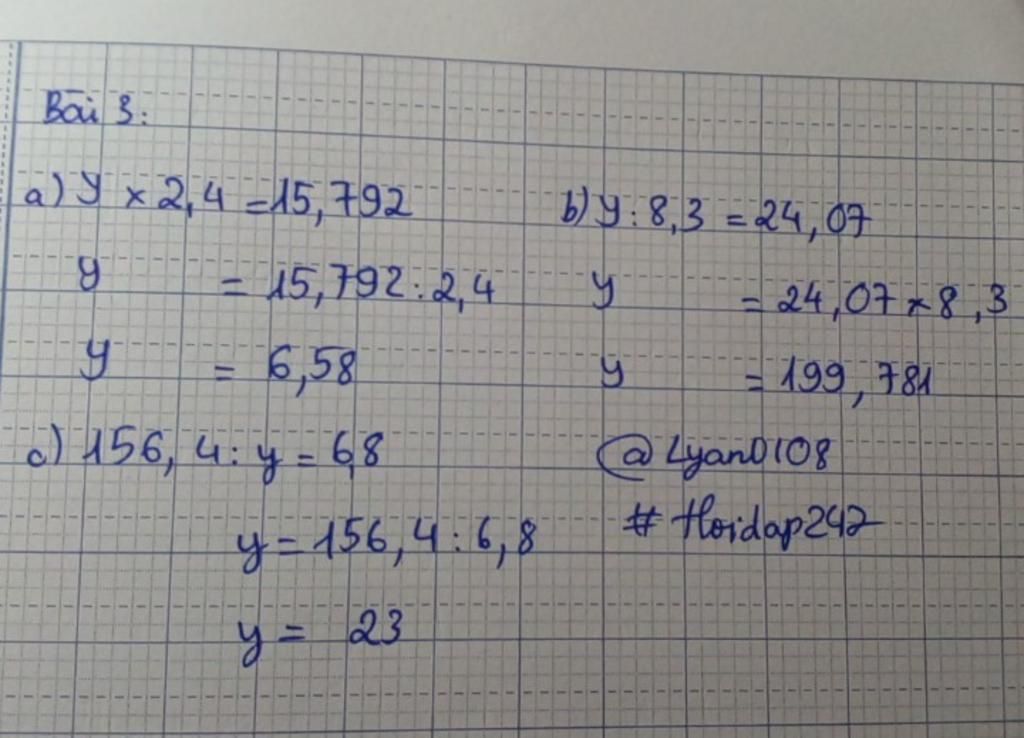 Bài 3:
a) y × 2,4 = 15,792
y = 15,792 : 2,4
y = 6,58
b) y : 8,3 = 24,07
y = 24,07 × 8,3
y = 199,781
c) 156,4 : y = 6,8
y = 156,4 : 6,8
y = 23
@Lyan0108
# Hoidap247